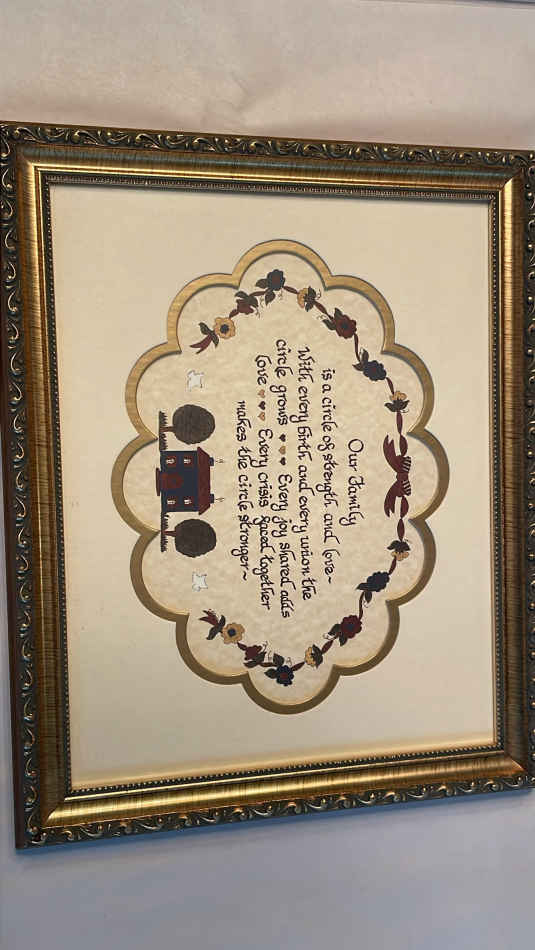 Our Family
is a circle of strength and love~
With every birth and every union the
circle grows ♥♥♥ Every joy shared adds
love ♥♥♥ Every crisis faced together
makes the circle stronger~